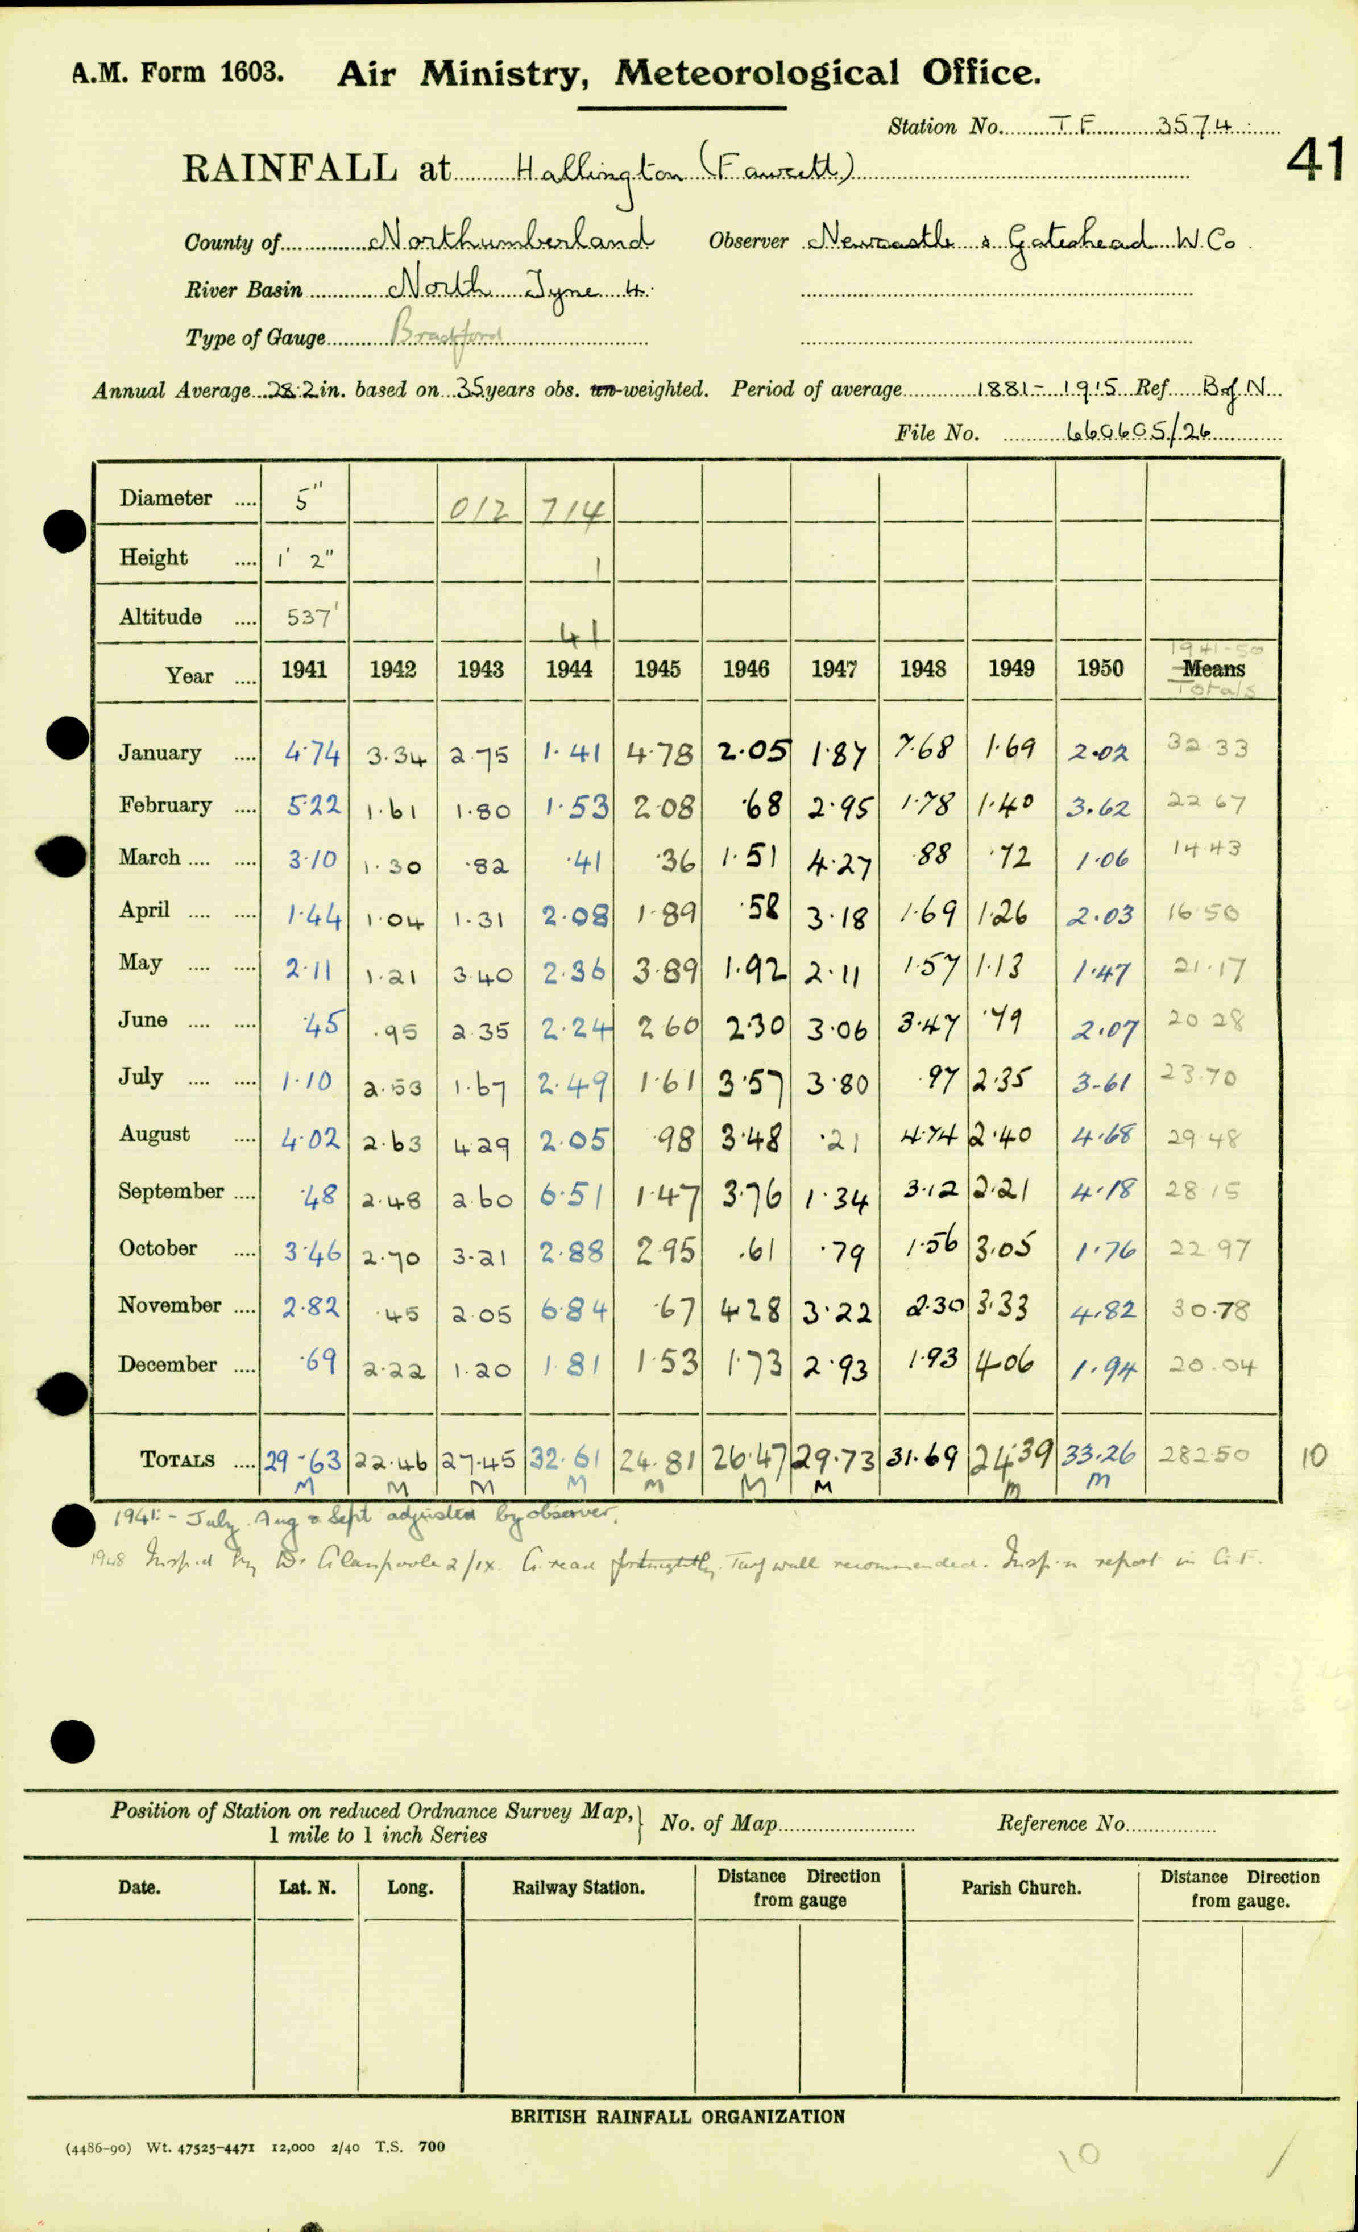 A.M. Form 1603. Air Ministry, Meteorological Office.
Station No. TF 3574
41
RAINFALL at Hallington (Fawcett)
County of Northumberland Observer Newcastle & Gateshead W. Co.
River Basin North Tyne 4.
Type of Gauge Bradford
Annual Average 28.2 in. based on 35 years obs. un-weighted. Period of average 1881-1915 Ref B of N
File No. 660605/26
Diameter .... 5" 012 714
Height .... 1' 2" 1
Altitude .... 537' 41
1941-50
Year .... 1941 1942 1943 1944 1945 1946 1947 1948 1949 1950 Means
Totals
January .... 4.74 3.34 2.75 1.41 4.78 2.05 1.87 7.68 1.69 2.02 32.33
February .... 5.22 1.61 1.80 1.53 2.08 .68 2.95 1.78 1.40 3.62 22 67
March .... .... 3.10 1.30 .82 .41 .36 1.51 4.27 .88 .72 1.06 14.43
April .... .... 1.44 1.04 1.31 2.08 1.89 .58 3.18 1.69 1.26 2.03 16.50
May .... .... 2.11 1.21 3.40 2.36 3.89 1.92 2.11 1.57 1.13 1.47 21.17
June .... .... .45 .95 2.35 2.24 2.60 2.30 3.06 3.47 .79 2.07 20 28
July .... .... 1.10 2.53 1.67 2.49 1.61 3.57 3.80 .97 2.35 3.61 23.70
August .... 4.02 2.63 4.29 2.05 .98 3.48 .21 4.74 2.40 4.68 29.48
September .... .48 2.48 2.60 6.51 1.47 3.76 1.34 3.12 2.21 4.18 28.15
October .... 3.46 2.70 3.21 2.88 2.95 .61 .79 1.56 3.05 1.76 22.97
November .... 2.82 .45 2.05 6.84 .67 4.28 3.22 2.30 3.33 4.82 30.78
December .... .69 2.22 1.20 1.81 1.53 1.73 2.93 1.93 4.06 1.94 20.04
TOTALS .... 29.63 22.46 27.45 32.61 24.81 26.47 29.73 31.69 24.39 33.26 282.50 10
M M M M M M M M M
1941:- July Aug & Sept adjusted by observer.
1948 Insp.d by D. Glasspoole 2/IX. G. read fortnightly. Turf wall recommended. Insp.n report in C.F.
Position of Station on reduced Ordnance Survey Map, 1 mile to 1 inch Series } No. of Map Reference No.
Date. Lat. N. Long. Railway Station. Distance Direction from gauge Parish Church. Distance Direction from gauge.
BRITISH RAINFALL ORGANIZATION
(4486-90) Wt. 47525-4471 12,000 2/40 T.S. 700
10